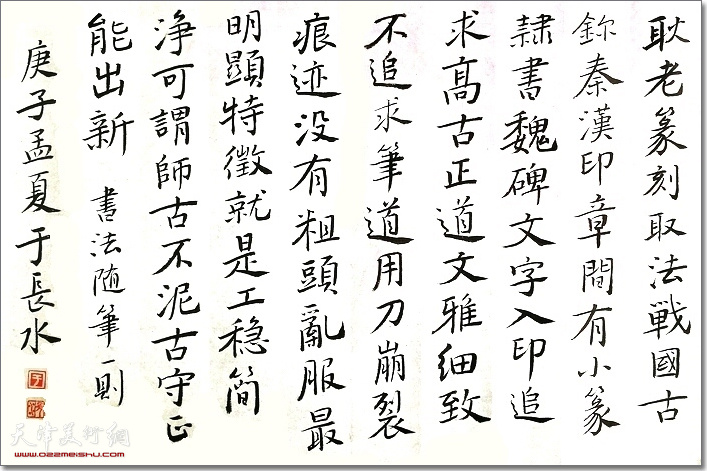 耿老篆刻取法戰國古
鉨秦漢印章間有小篆
隸書魏碑文字入印追
求高古正道文雅細致
不追求筆道用刀崩裂
痕迹没有粗頭亂服最
明顯特徵就是工稳簡
净可謂師古不泥古守正
能出新 書法随筆一則
庚子孟夏于長水
天津美术網
www.022meishu.com